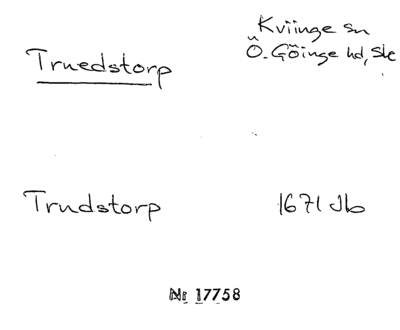 Truedstorp
Kviinge sn
Ö. Göinge hd, Sk
Trudstorp
1671 Jb
Nr 17758